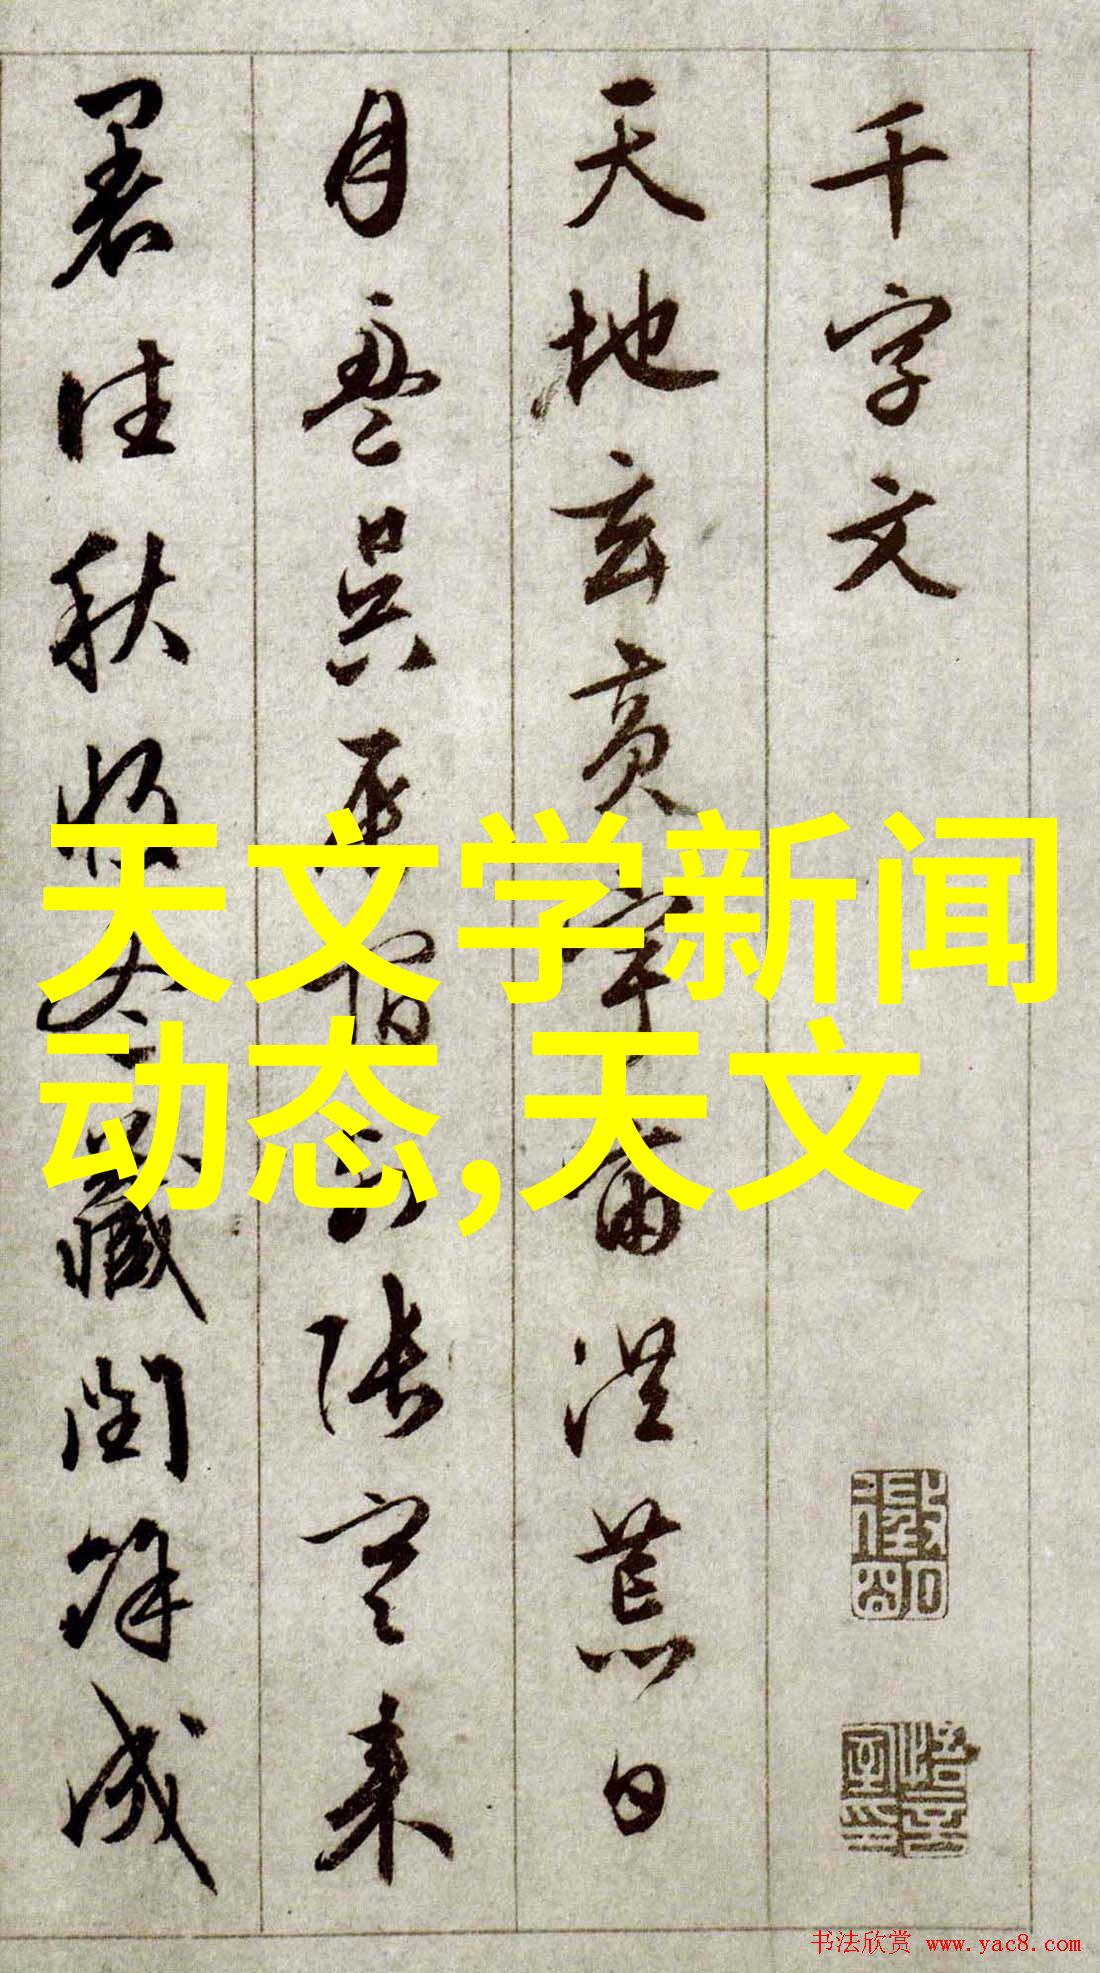 千字文
天地玄黃宇宙洪荒日
月盈昃辰宿列張寒來
暑往秋收冬藏閏餘成
天文学新闻
动态,天文
书法欣赏 www.yac8.com